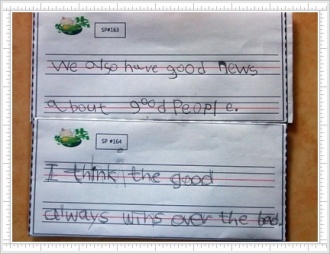 SP#163
We also have good news
about good people.
SP #164
I think the good
always wins over the bad.